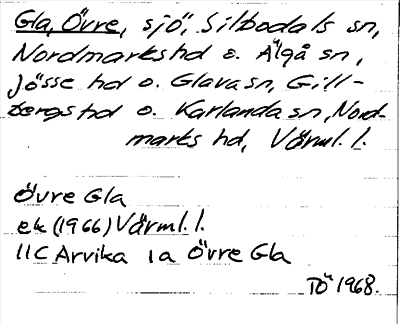 Gla, Övre, sjö, Silbodals sn,
Nordmarks hd o. Älgå sn,
Jösse hd o. Glava sn, Gill-
bergs hd o. Karlanda sn, Nord-
marks hd, Värml. l.
Övre Gla
ek (1966) Värml. l.
11C Arvika 1a Övre Gla
TÖ 1968.